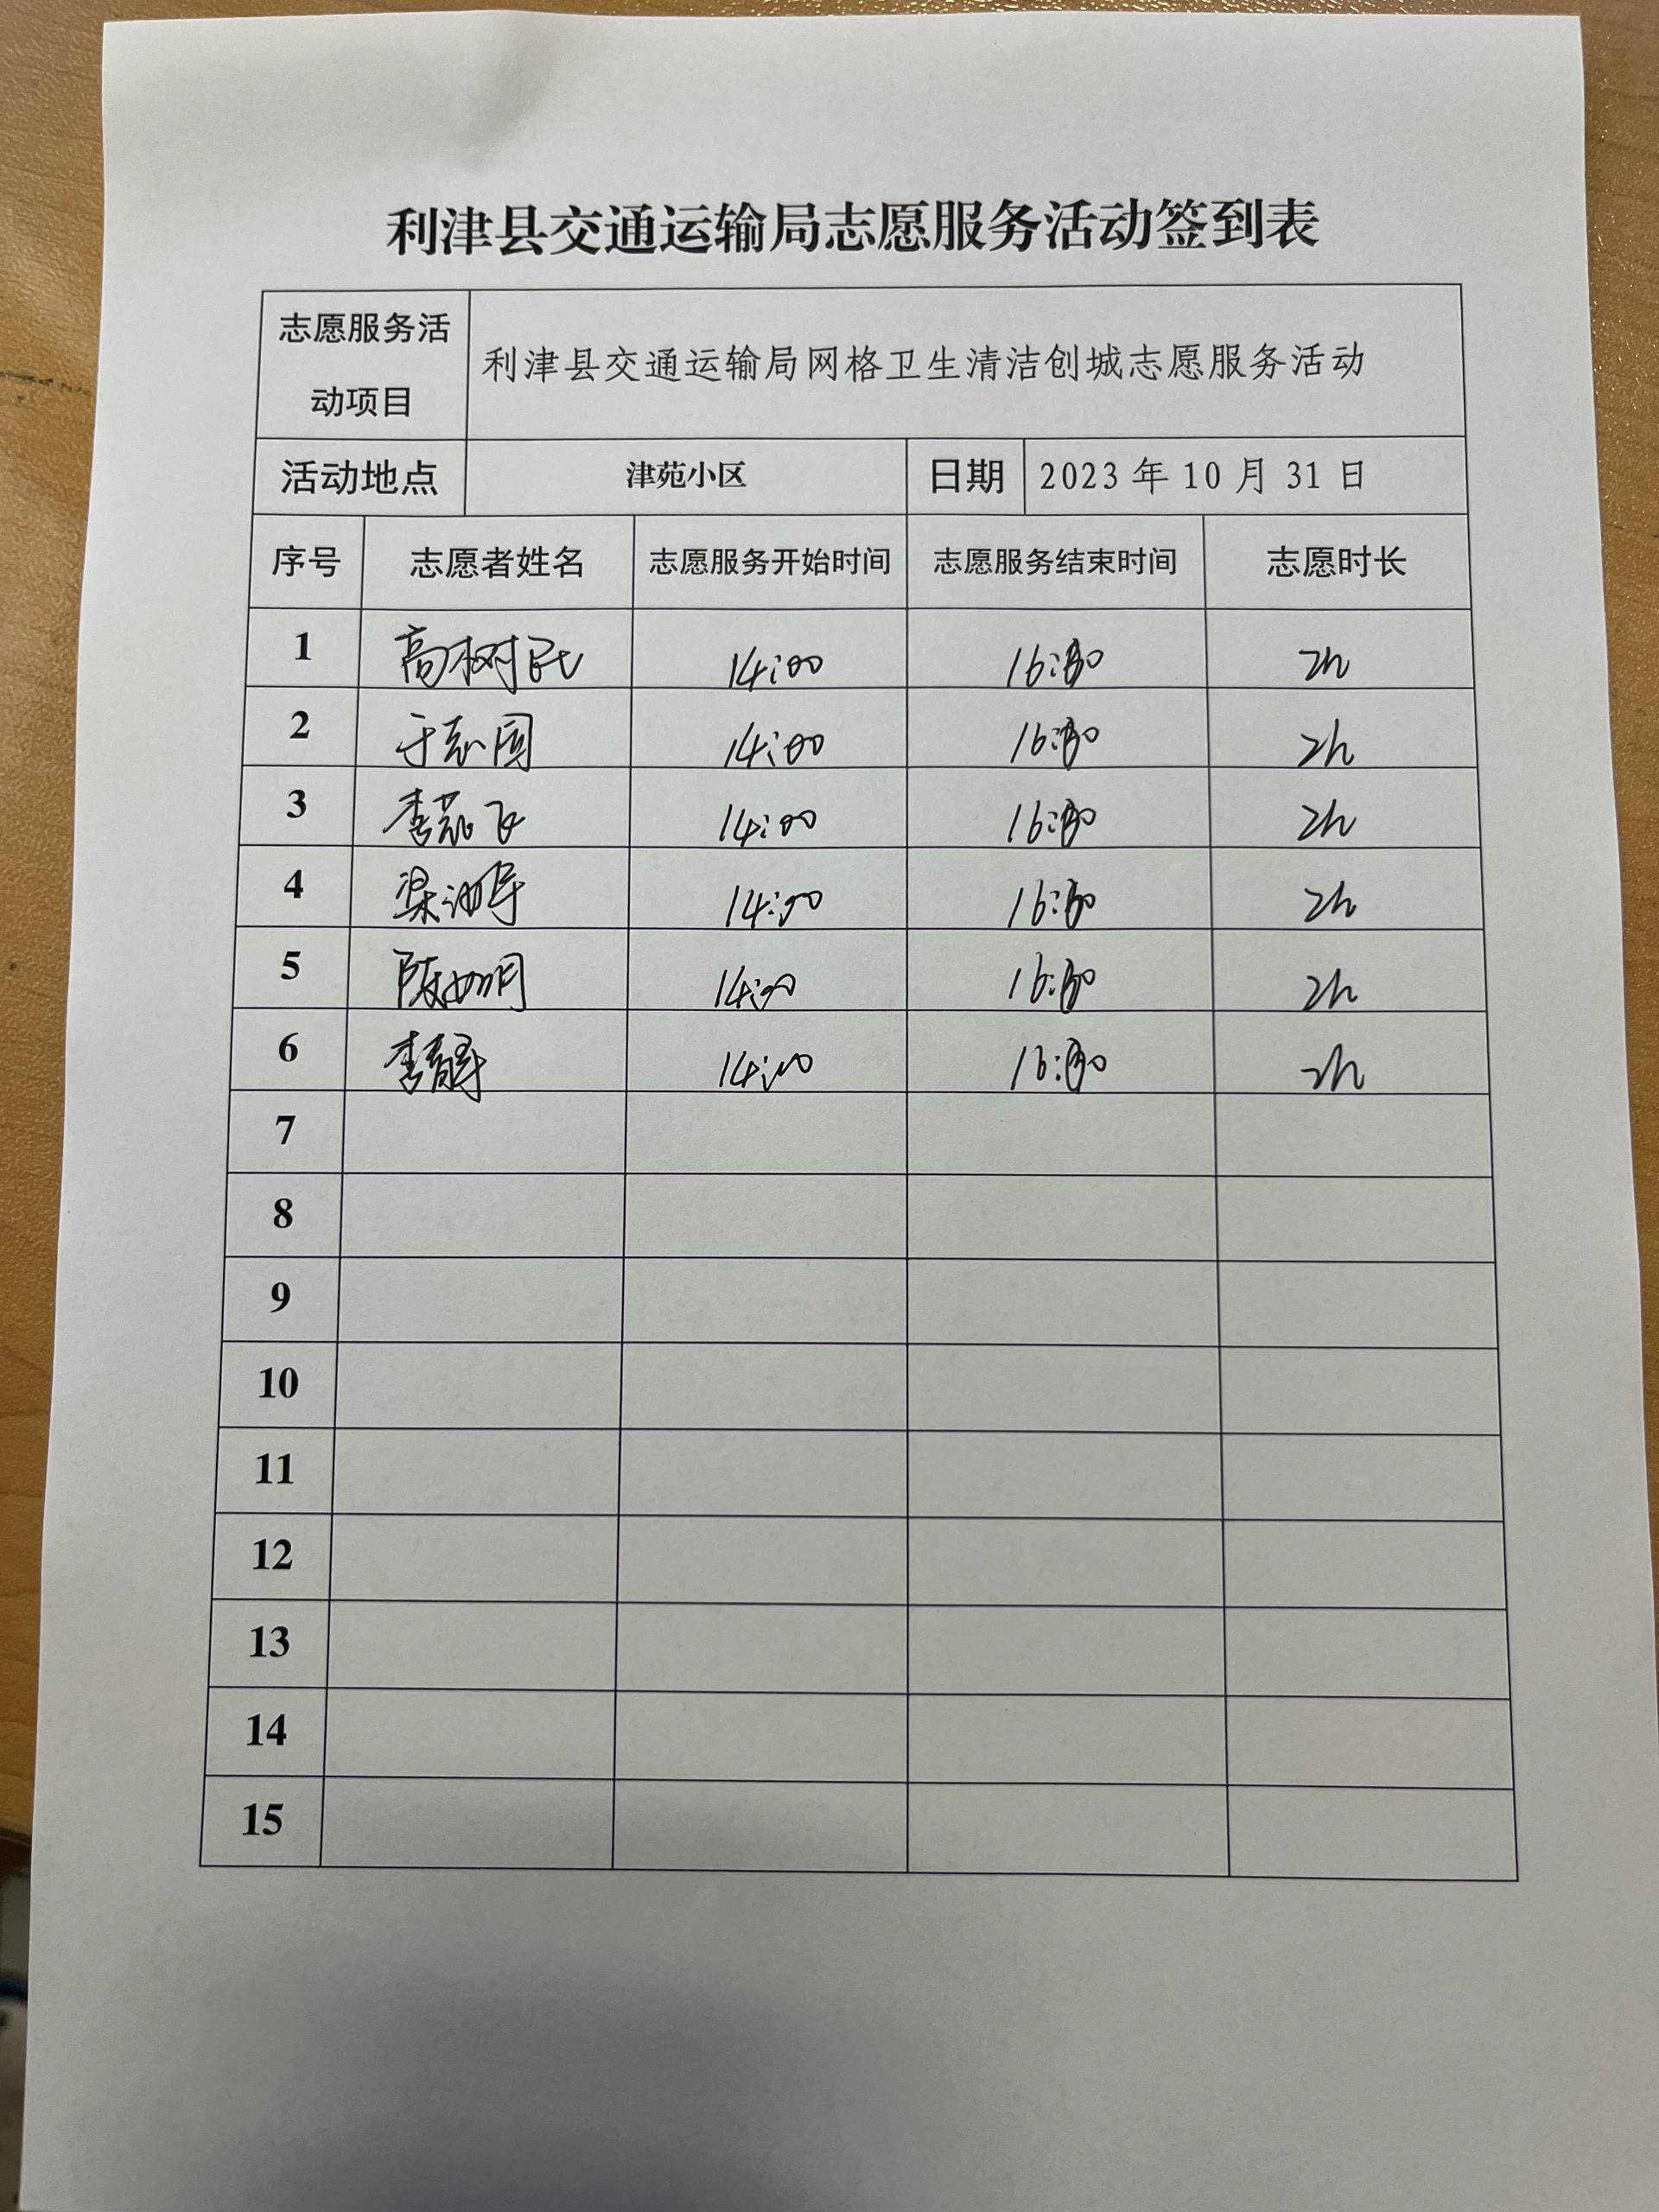 利津县交通运输局志愿服务活动签到表
志愿服务活动项目 利津县交通运输局网格卫生清洁创城志愿服务活动
活动地点 津苑小区 日期 2023年10月31日
序号 志愿者姓名 志愿服务开始时间 志愿服务结束时间 志愿时长
1 高树民 14:00 2h
2 于志国 14:00 2h
3 14:00 2h
4 14:00 2h
5 陈如月 14:00 2h
6 李静 14:00 2h
7
8
9
10
11
12
13
14
15